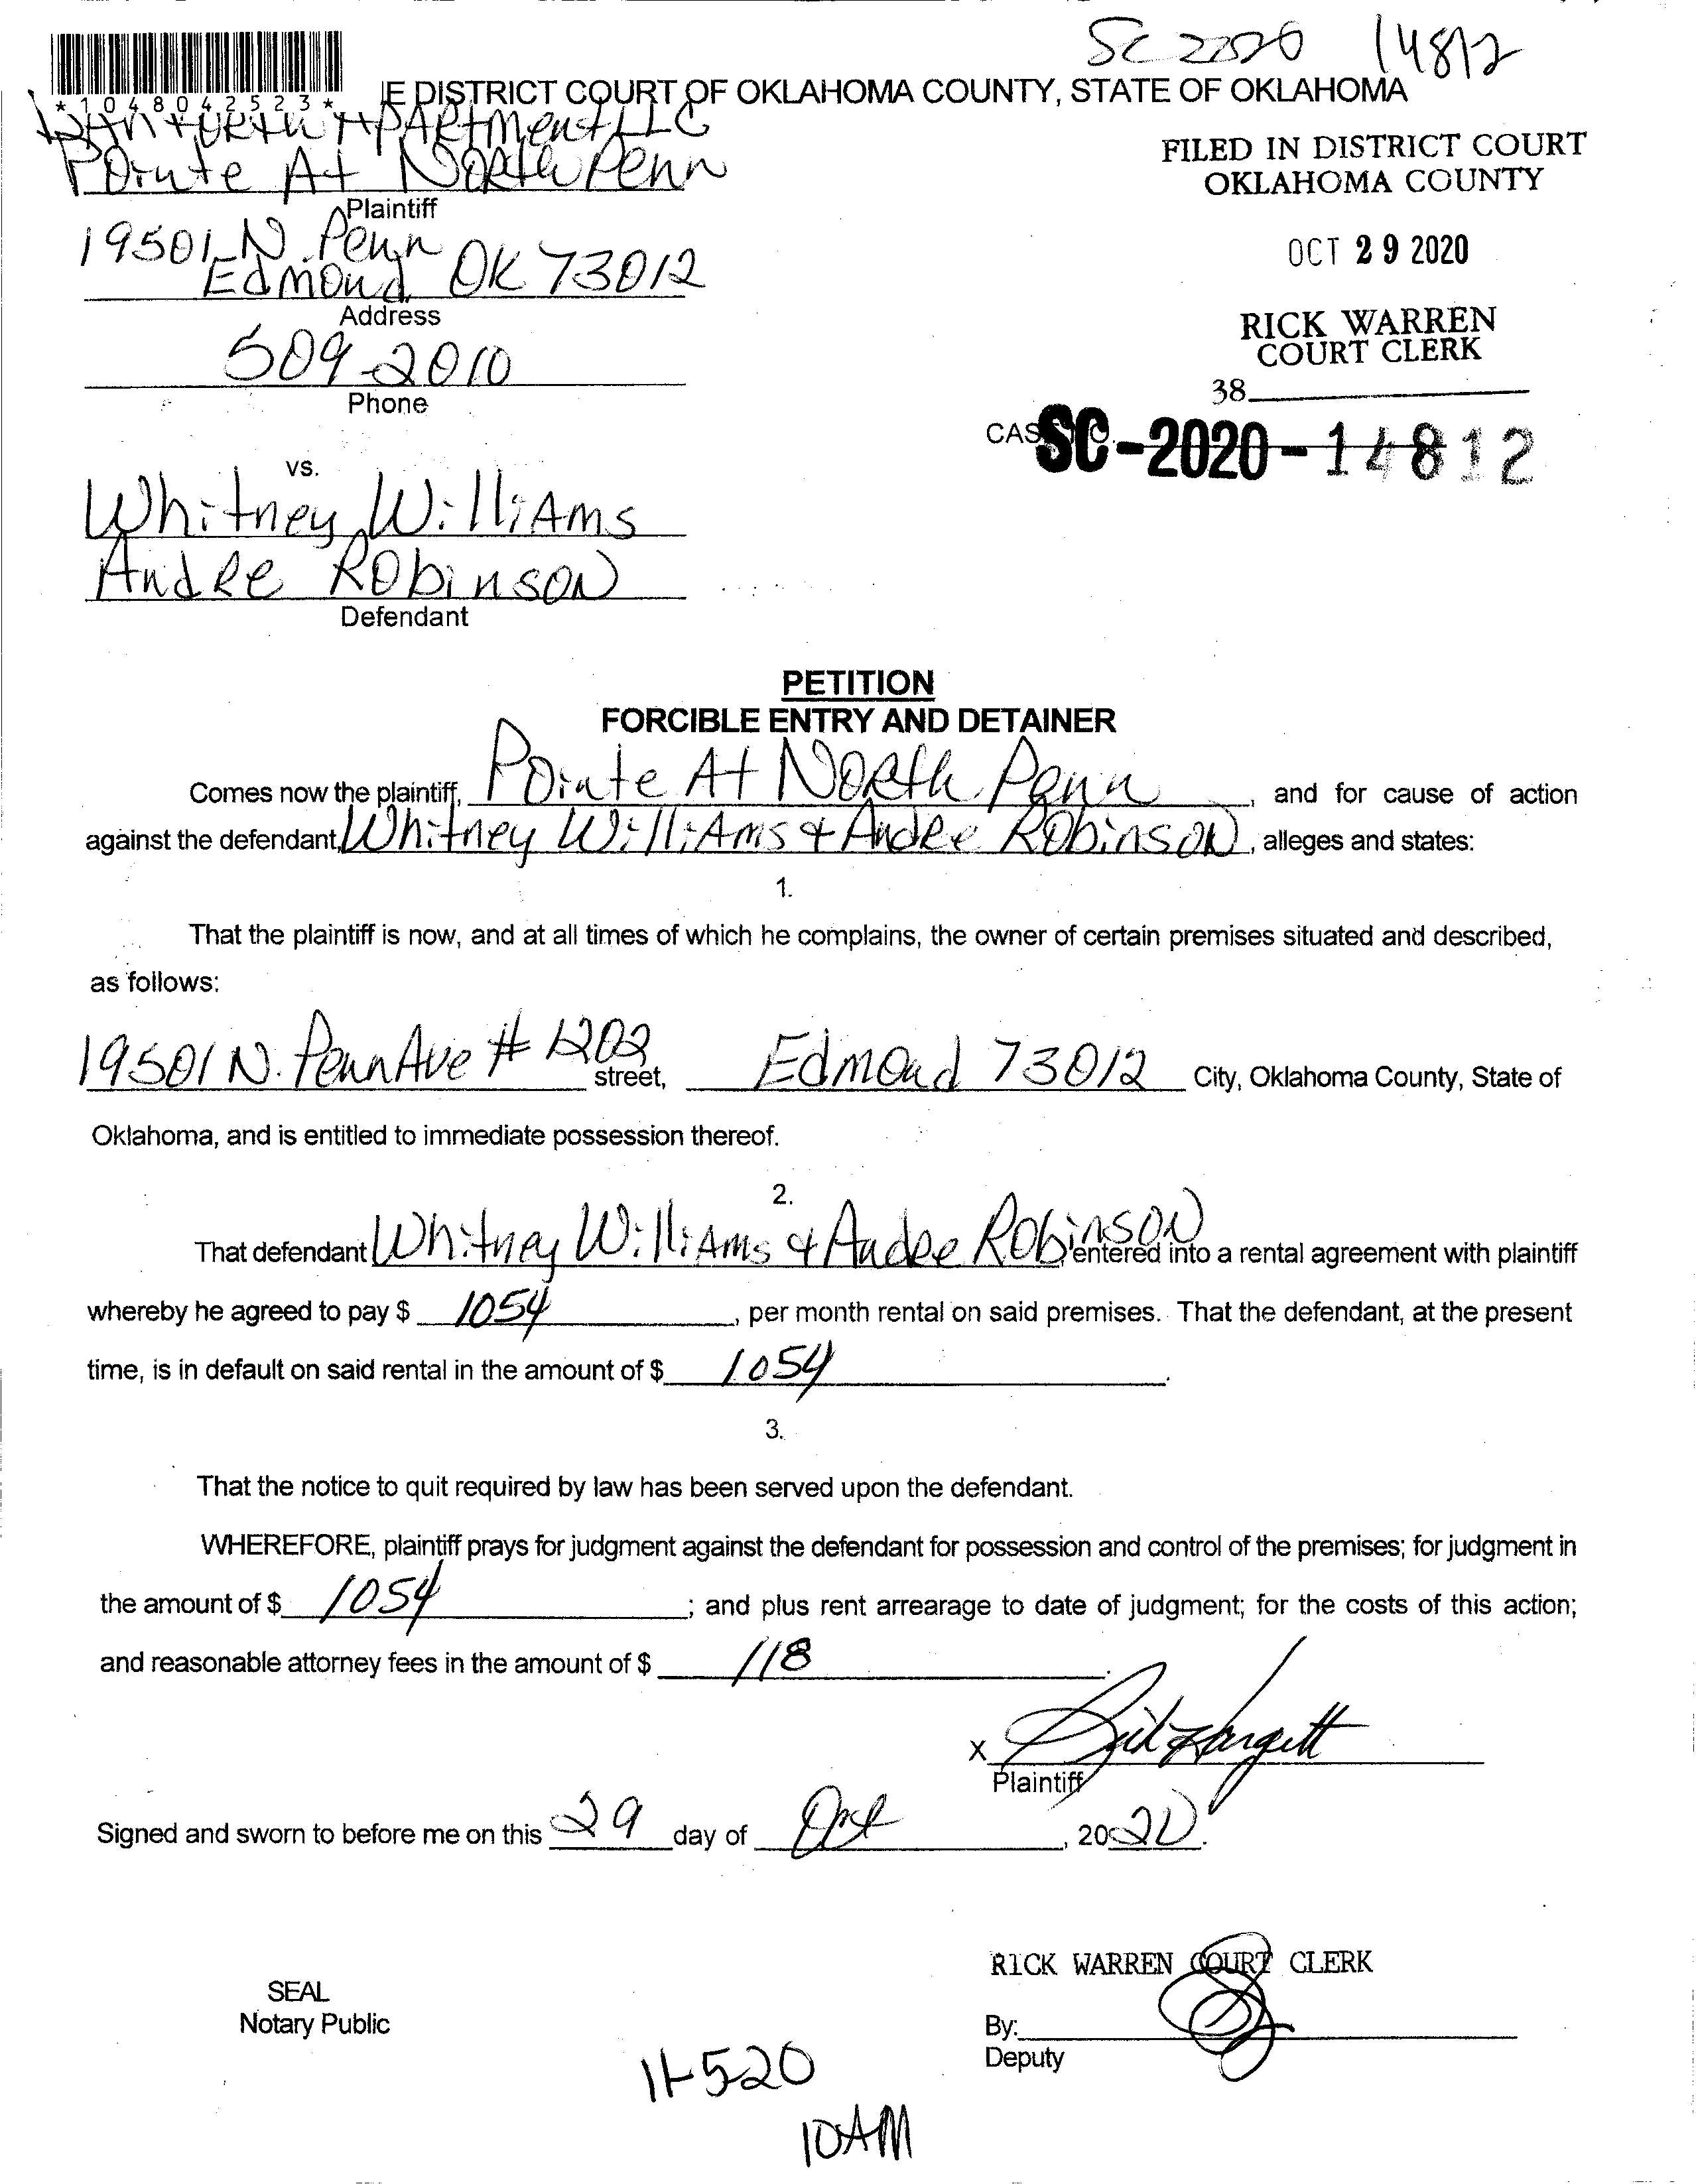 SC 2020 14812
*1048042523*
E DISTRICT COURT OF OKLAHOMA COUNTY, STATE OF OKLAHOMA
APARtMent LLC
Pointe At NORth Penn
Plaintiff
19501 N. Penn
Edmond OK 73012
Address
509-2010
Phone
FILED IN DISTRICT COURT
OKLAHOMA COUNTY
OCT 29 2020
RICK WARREN
COURT CLERK
38
CAS SC-2020-14812
vs.
Whitney WilliAms
AndRe RObinsoN
Defendant
PETITION
FORCIBLE ENTRY AND DETAINER
Comes now the plaintiff, Pointe At NORth Penn, and for cause of action
against the defendant, Whitney WilliAms & AndRe RObinsoN, alleges and states:
1.
That the plaintiff is now, and at all times of which he complains, the owner of certain premises situated and described,
as follows:
19501 N. Penn Ave # 1202 street, Edmond 73012 City, Oklahoma County, State of
Oklahoma, and is entitled to immediate possession thereof.
2.
That defendant Whitney WilliAms & AndRe RObinsoN entered into a rental agreement with plaintiff
whereby he agreed to pay $ 1054, per month rental on said premises. That the defendant, at the present
time, is in default on said rental in the amount of $ 1054.
3.
That the notice to quit required by law has been served upon the defendant.
WHEREFORE, plaintiff prays for judgment against the defendant for possession and control of the premises; for judgment in
the amount of $ 1054; and plus rent arrearage to date of judgment; for the costs of this action;
and reasonable attorney fees in the amount of $ 118.
X
Plaintiff
Signed and sworn to before me on this 29 day of Oct, 2020.
RICK WARREN COURT CLERK
SEAL
Notary Public
By:
Deputy
11-520
10AM